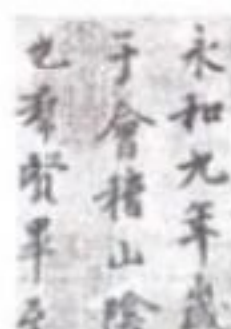 永和九年歲
于會稽山陰
也群賢畢至